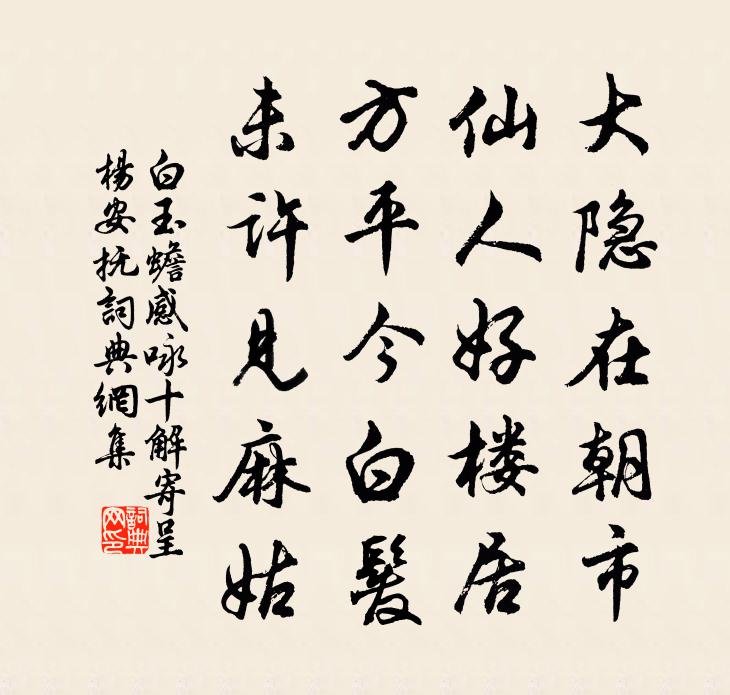 大隐在朝市
仙人好楼居
方平今白髮
未许見麻姑
白玉蟾感咏十解寄呈
楊安抚詞典網集
詞典网印